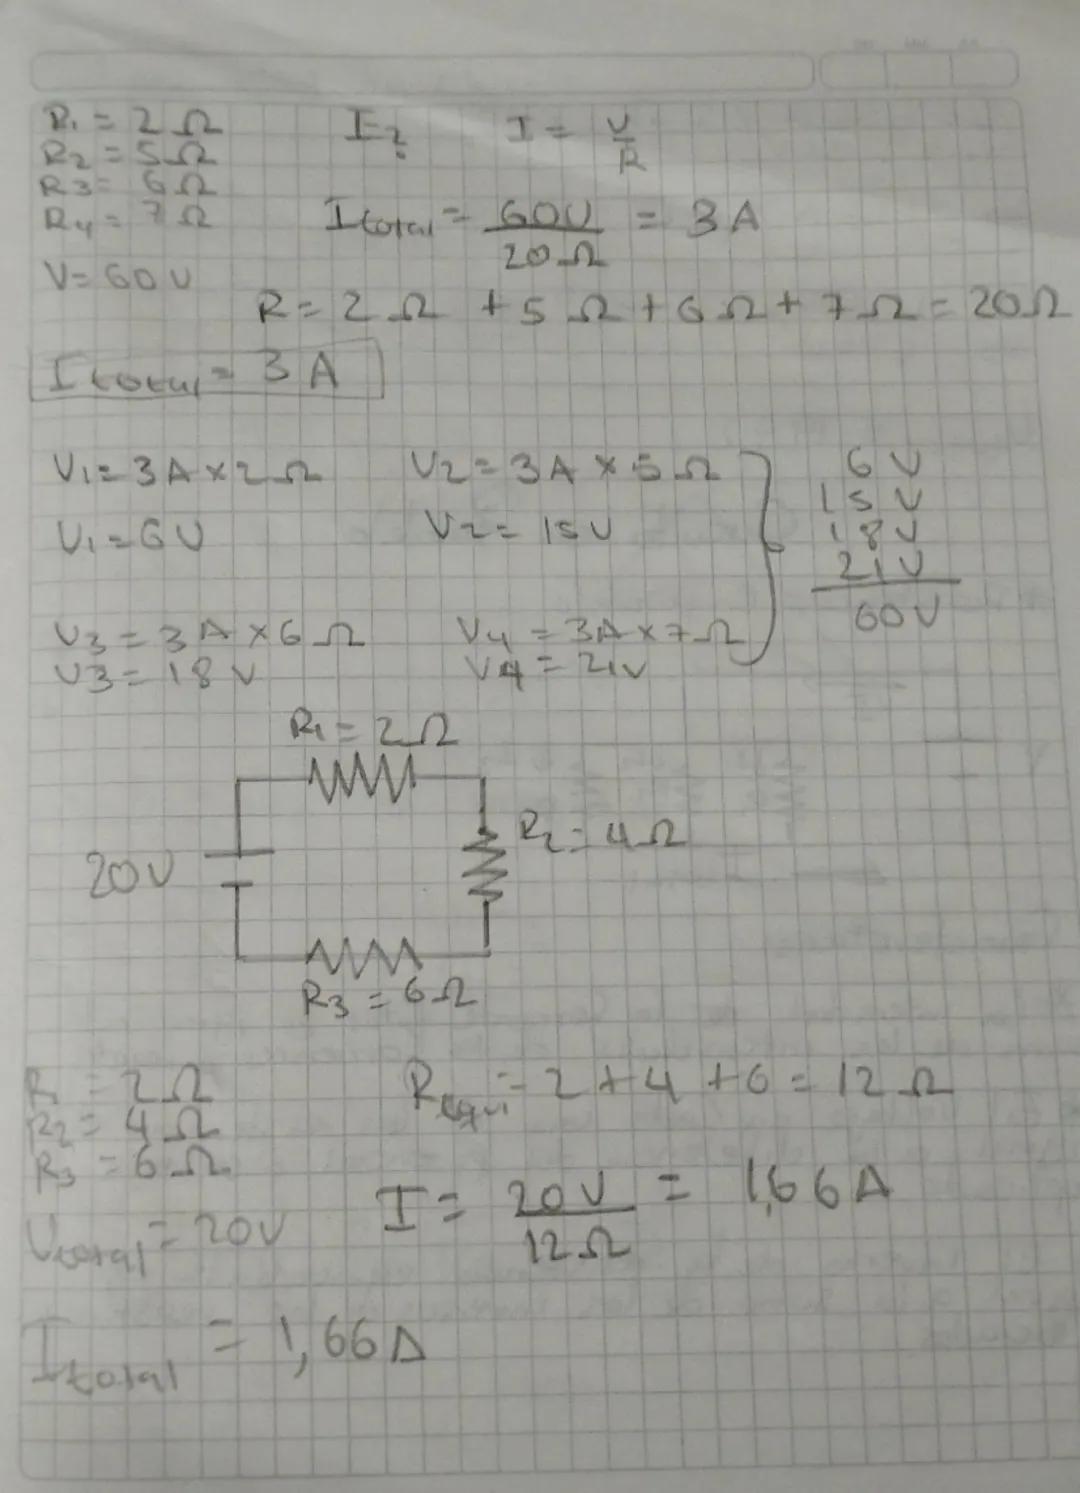 R1 = 2 Ω
R2 = 5 Ω
R3 = 6 Ω
R4 = 7 Ω
V = 60 V
I? I = V/R
I total = 60V/20 Ω = 3 A
R = 2 Ω + 5 Ω + 6 Ω + 7 Ω = 20 Ω
I total = 3 A
V1 = 3 A × 2 Ω V2 = 3 A × 5 Ω
V1 = 6 V V2 = 15 V
V3 = 3 A × 6 Ω V4 = 3A × 7 Ω
V3 = 18 V V4 = 21V
6 V
15 V
18 V
21 V
60 V
R1 = 2 Ω
20 V
R2 = 4 Ω
R3 = 6 Ω
R = 2 Ω
R2 = 4 Ω
R3 = 6 Ω
V total = 20V
Requi = 2 + 4 + 6 = 12 Ω
I = 20 V/12 Ω = 1,66 A
I total = 1,66 A